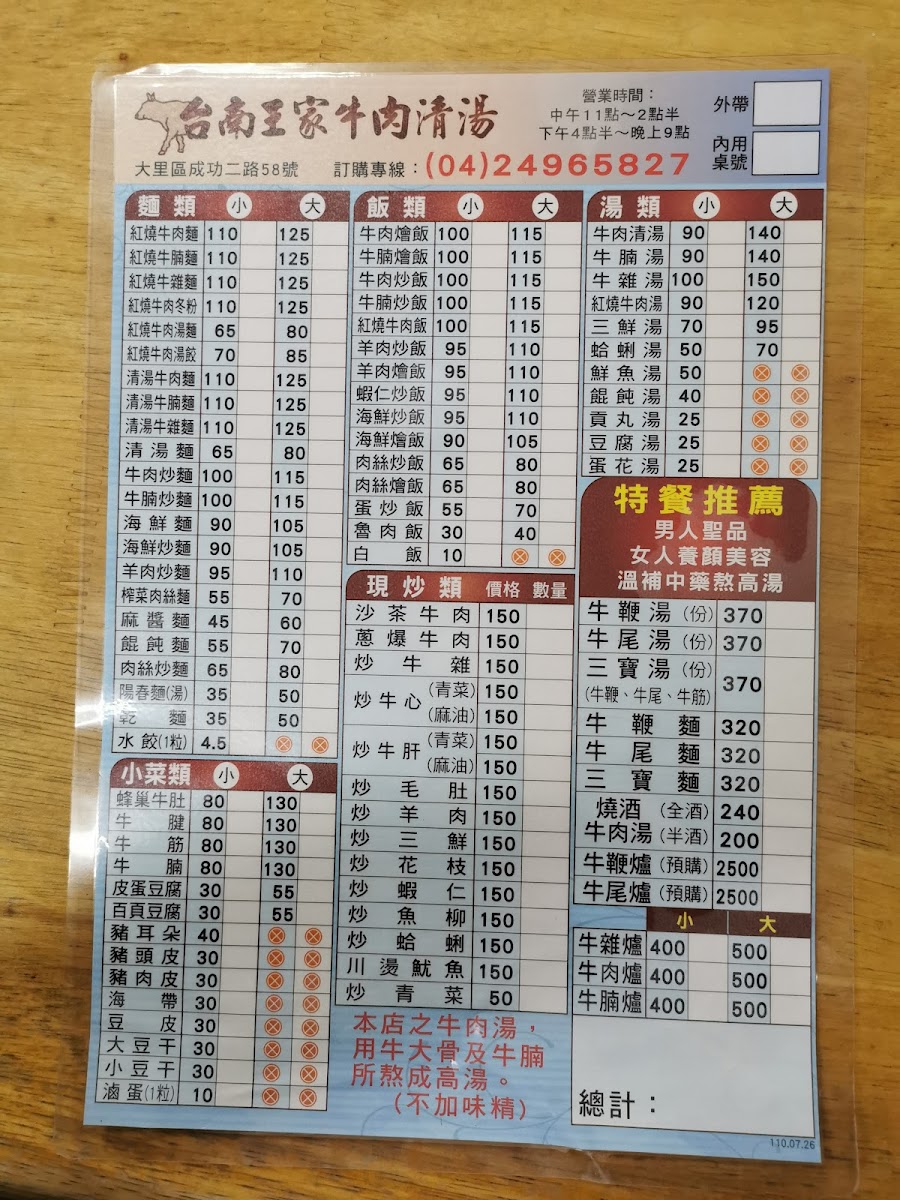 台南王家牛肉清湯
營業時間：
中午11點～2點半
下午4點半～晚上9點
外帶
內用
桌號
大里區成功二路58號 訂購專線：(04)24965827
麵類 小 大
紅燒牛肉麵 110 125
紅燒牛腩麵 110 125
紅燒牛雜麵 110 125
紅燒牛肉冬粉 110 125
紅燒牛肉湯麵 65 80
紅燒牛肉湯餃 70 85
清湯牛肉麵 110 125
清湯牛腩麵 110 125
清湯牛雜麵 110 125
清湯麵 65 80
牛肉炒麵 100 115
牛腩炒麵 100 115
海鮮麵 90 105
海鮮炒麵 90 105
羊肉炒麵 95 110
榨菜肉絲麵 55 70
麻醬麵 45 60
餛飩麵 55 70
肉絲炒麵 65 80
陽春麵(湯) 35 50
乾麵 35 50
水餃(1粒) 4.5
小菜類 小 大
蜂巢牛肚 80 130
牛腱 80 130
牛筋 80 130
牛腩 80 130
皮蛋豆腐 30 55
百頁豆腐 30 55
豬耳朵 40
豬頭皮 30
豬肉皮 30
海帶 30
豆皮 30
大豆干 30
小豆干 30
滷蛋(1粒) 10
飯類 小 大
牛肉燴飯 100 115
牛腩燴飯 100 115
牛肉炒飯 100 115
牛腩炒飯 100 115
紅燒牛肉飯 100 115
羊肉炒飯 95 110
羊肉燴飯 95 110
蝦仁炒飯 95 110
海鮮炒飯 95 110
海鮮燴飯 90 105
肉絲炒飯 65 80
肉絲燴飯 65 80
蛋炒飯 55 70
魯肉飯 30 40
白飯 10
現炒類 價格 數量
沙茶牛肉 150
蔥爆牛肉 150
炒牛雜 150
炒牛心 (青菜) 150
(麻油) 150
炒牛肝 (青菜) 150
(麻油) 150
炒毛肚 150
炒羊肉 150
炒三鮮 150
炒花枝 150
炒蝦仁 150
炒魚柳 150
炒蛤蜊 150
川燙魷魚 150
炒青菜 50
本店之牛肉湯，
用牛大骨及牛腩
所熬成高湯。
(不加味精)
湯類 小 大
牛肉清湯 90 140
牛腩湯 90 140
牛雜湯 100 150
紅燒牛肉湯 90 120
三鮮湯 70 95
蛤蜊湯 50 70
鮮魚湯 50
餛飩湯 40
貢丸湯 25
豆腐湯 25
蛋花湯 25
特餐推薦
男人聖品
女人養顏美容
溫補中藥熬高湯
牛鞭湯(份) 370
牛尾湯(份) 370
三寶湯(份) 370
(牛鞭、牛尾、牛筋)
牛鞭麵 320
牛尾麵 320
三寶麵 320
燒酒 (全酒) 240
牛肉湯 (半酒) 200
牛鞭爐 (預購) 2500
牛尾爐 (預購) 2500
小 大
牛雜爐 400 500
牛肉爐 400 500
牛腩爐 400 500
總計：
110.07.26